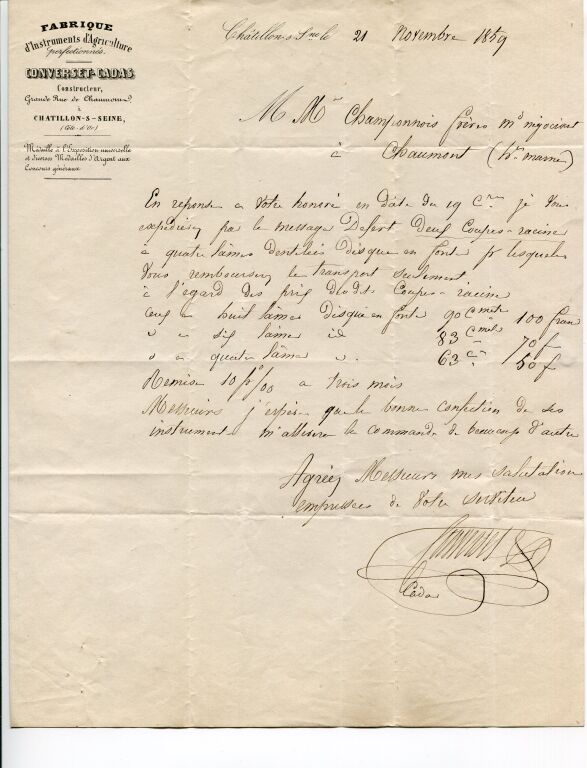 FABRIQUE
d'Instruments d'Agriculture
perfectionnés.
CONVERSET-CADAS
Constructeur,
Grande Rue de Chaumont,
à
CHATILLON-S-SEINE,
(Côte-d'Or)
Médaille à l'Exposition universelle
et diverses Médailles d'Argent aux
Concours généraux
Châtillon-s-Sne le 21 Novembre 1859
M Mrs Champonnois frères md négociant
à Chaumont (hte marne)
En reponse a votre honoré en date du 19 Cre je Vous
expédirez par le message Defert Deux Coupes-racine
à quatre lâmes dentelées Disque en fonte pr lesquels
Vous rembourserez le transport seulement
à l'egard des prix desdits Coupes-racine
ceux a huit lâmes Disque en fonte 90 Cmets 100 franc
" a six lâmes id 83 Cmets 70 f
" a quatre lâmes " 63 C 50 f
Remise 10 p% a trois mois
Messieurs j'espère que le bonne confection de ses
instrument m'assurera la commande de beaucoup d'autre
Agréez Messieurs mes salutation
empressées de Votre serviteur
Cadas